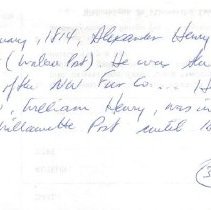 uary, 1814, Alexander Henry
(Walsa Post). He was the
of the NW Fur Co.... H
, William Henry, was in
Willamette Post until
3